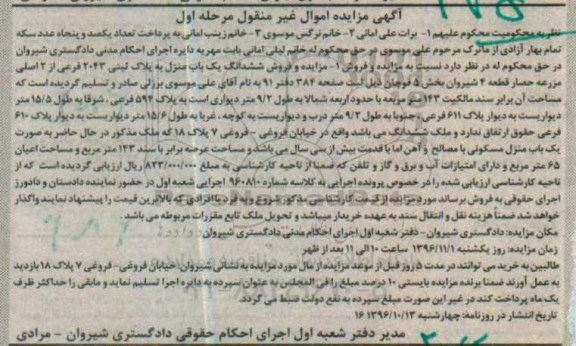 آگهی مزایده اموال غیر منقول مرحله اول
نظر به محکومیت محکوم علیهم ۱- برات علی امانی ۲- خانم نرگس موسوی ۳- خانم زینب امانی به پرداخت تعداد یکصد و پنجاه عدد سکه
تمام بهار آزادی از ماترک مرحوم علی موسوی در حق محکوم له خانم لیلی امانی بابت مهریه دایره اجرای احکام مدنی دادگستری شیروان
در حق محکوم له در نظر دارد نسبت به مزایده و فروش ۱- مزایده و فروش ششدانگ یک باب منزل به پلاک ثبتی ۲۰۴۳ فرعی از ۲ اصلی
مزرعه حصار قطعه ۴ شیروان بخش ۵ قوچان ذیل ثبت صفحه ۳۸۴ دفتر ۹۱ به نام آقای علی موسوی برزلی صادر و تسلیم گردیده است که
مساحت آن برابر سند مالکیت ۱۴۳ متر مربعه با حدود اربعه شمالا به طول ۹/۲ متر دیواری است به پلاک ۵۹۴ فرعی ، شرقا به طول ۱۵/۵ متر
دیواریست به دیوار پلاک ۶۱۱ فرعی ، جنوبا به طول ۹/۲ متر درب و دیواریست به کوچه ، غربا به طول ۱۵/۶ متر دیواریست به دیوار پلاک ۶۱۰
فرعی حقوق ارتفاق ندارد و ملک ششدانگ می باشد واقع در خیابان فروغی - فروغی ۷ پلاک ۱۸ که ملک مذکور در حال حاضر به صورت
یک باب منزل مسکونی با مصالح و آهن اما با قدمت بیش از سی سال می باشد و مساحت عرصه برابر با سند ۱۴۳ متر مربع و مساحت اعیان
۶۵ متر مربع و دارای امتیازات آب و برق و گاز و تلفن که ضمنا از ناحیه کارشناسی به مبلغ ۸۲۳/۰۰۰/۰۰۰ ریال ارزیابی گردیده است که از
ناحیه کارشناسی ارزیابی شده را در خصوص پرونده اجرایی به کلاسه شماره ۹۶۰۸۱۰ اجرایی شعبه اول در حضور نماینده دادستان و دادورز
اجرای حقوقی به فروش برساند مورد مزایده از قیمت کارشناسی مذکور شروع و به فرد یا افرادی که بالاترین قیمت را پیشنهاد نمایند واگذار
خواهد شد ضمناً هزینه نقل و انتقال سند به عهده خریدار میباشد و تحویل ملک تابع مقررات مربوطه می باشد
مکان مزایده: دادگستری شیروان - دفتر شعبه اول اجرای احکام مدنی دادگستری شیروان
زمان مزایده: روز یکشنبه ۱۳۹۶/۱۱/۱ ساعت ۱۰ الی ۱۱ بعد از ظهر
طالبین به خرید می توانند در مدت ۵ روز قبل از موعد مزایده از مال مورد مزایده به نشانی شیروان خیابان فروغی- فروغی ۷ پلاک ۱۸ بازدید
به عمل آورند ضمنا برنده مزایده بایستی ۱۰ درصد مبلغ را فی المجلس به عنوان سپرده به دایره اجرا تسلیم نماید و مابقی را حداکثر ظرف
یک ماه پرداخت کند در غیر این صورت مبلغ سپرده به نفع دولت ضبط می گردد.
تاریخ انتشار در روزنامه: چهارشنبه ۱۳۹۶/۱۰/۱۳ ۱۶
مدیر دفتر شعبه اول اجرای احکام حقوقی دادگستری شیروان - مرادی